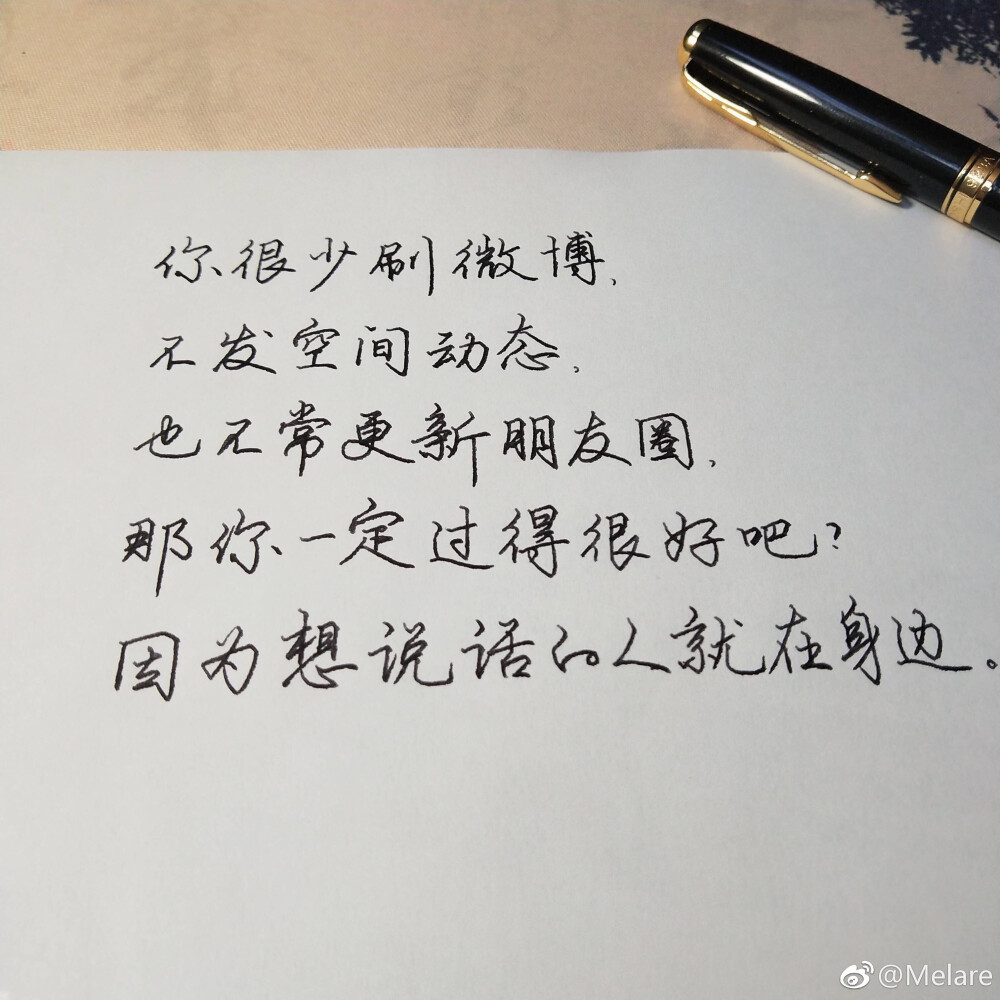 你很少刷微博,
不发空间动态,
也不常更新朋友圈,
那你一定过得很好吧?
因为想说话的人就在身边。
@Melare